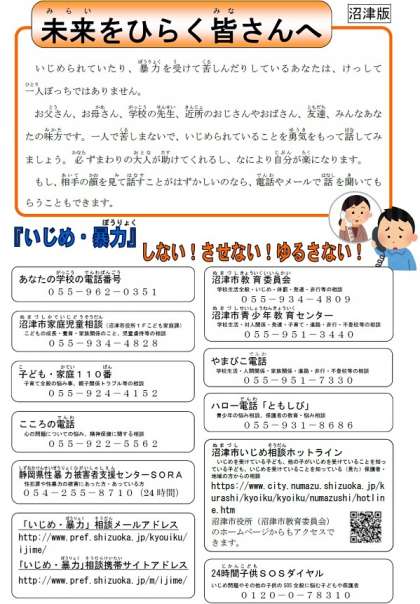 未来をひらく皆さんへ
沼津版
いじめられていたり、暴力を受けて苦しんだりしているあなたは、けっして
一人ぼっちではありません。
お父さん、お母さん、学校の先生、近所のおじさんやおばさん、友達、みんなあな
たの味方です。一人で苦しまないで、いじめられていることを勇気をもって話してみ
ましょう。必ずまわりの大人が助けてくれるし、なにより自分が楽になります。
もし、相手の顔を見て話すことがはずかしいのなら、電話やメールで話しを聞いても
らうこともできます。
『いじめ・暴力』
しない!させない!ゆるさない!
あなたの学校の電話番号
055-962-0351
沼津市家庭児童相談(沼津市役所1Fこども家庭課)
こどもの成長・養育・家族関係のこと、児童虐待等の相談
055-934-4828
子ども・家庭110番
子育て全般の悩み事、親子関係トラブル等の相談
055-924-4152
こころの電話
心の問題についての悩み、精神保健に関する相談
055-922-5562
静岡県性暴力被害者支援センターSORA
性犯罪や性暴力の被害にあった方・あっている方
054-255-8710(24時間)
「いじめ・暴力」相談メールアドレス
http://www.pref.shizuoka.jp/kyouiku/
ijime/
「いじめ・暴力」相談携帯サイトアドレス
http://www.pref.shizuoka.jp/m/ijime/
沼津市教育委員会
学校生活全般・いじめ・体罰・発達・非行等の相談
055-934-4809
沼津市青少年教育センター
学校生活・対人関係・発達・子育て・進路・非行・不登校等の相談
055-951-3440
やまびこ電話
学校生活・人間関係・家族関係・進路・非行・不登校等の相談
055-951-7330
ハロー電話「ともしび」
青少年の悩み相談、保護者の教育・悩み相談
055-931-8686
沼津市いじめ相談ホットライン
いじめを受けている子ども、他の子がいじめを受けていることを知っ
ている子ども、いじめを受けていることを知っている(見た)保護者・
地域の方からの相談
https://www.city.numazu.shizuoka.jp/k
urashi/kyoiku/kyoiku/numazushi/hotlin
e.htm
沼津市役所(沼津市教育委員会)
のホームページからもアクセスで
きます。
24時間子供SOSダイヤル
いじめ問題やその他の子供のSOS全般に悩む子どもや保護者
0120-0-78310